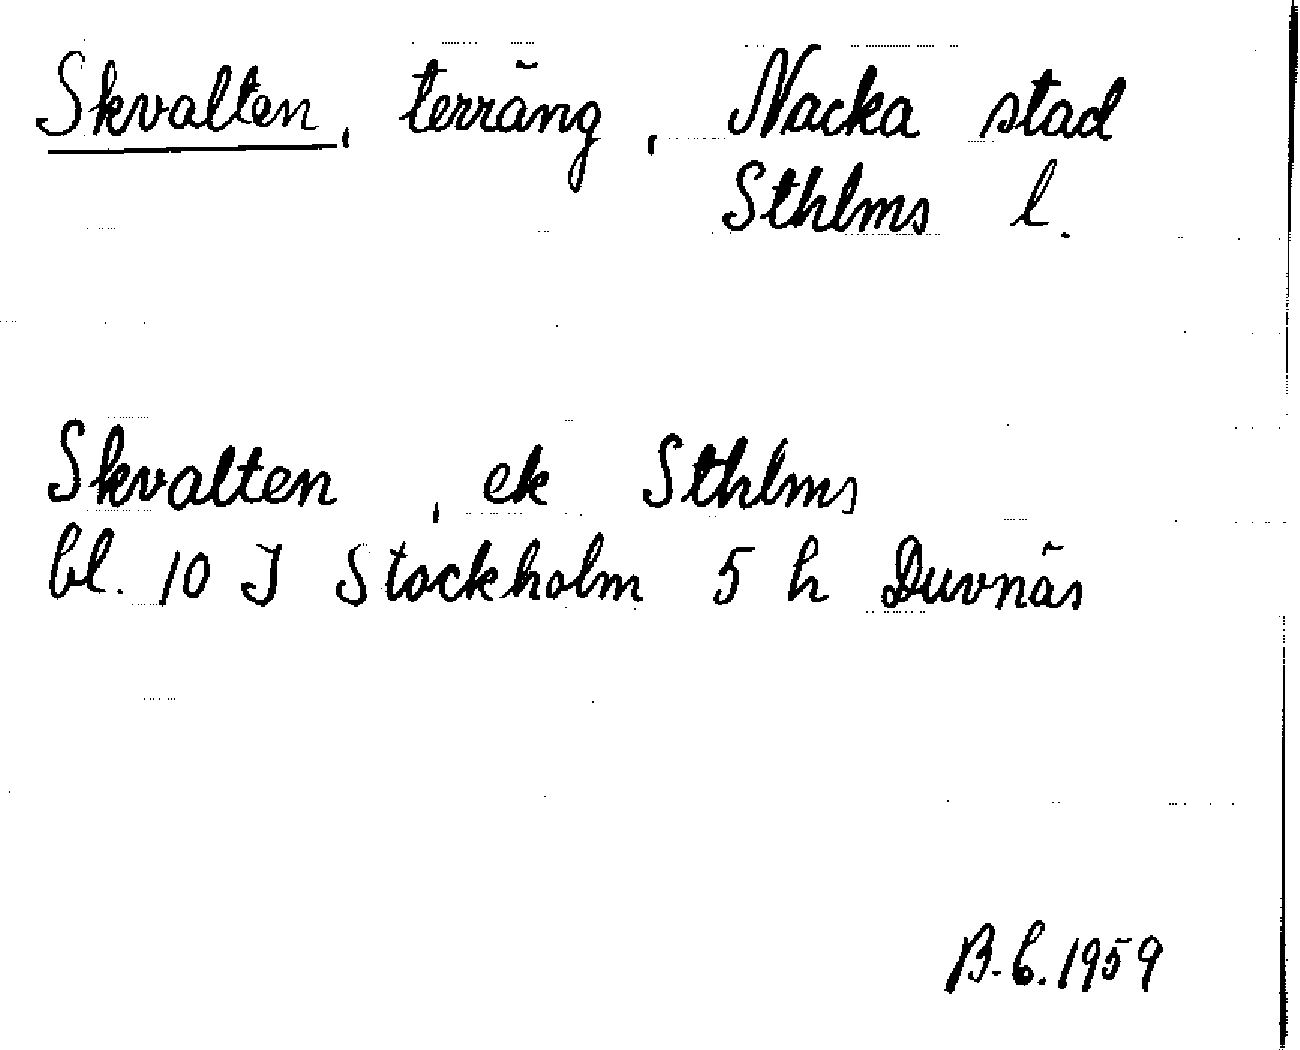 Skvalten, terräng, Nacka stad
Sthlms l.
Skvalten, ek Sthlms
bl. 10 J Stockholm 5 h Duvnäs
B.C. 1959